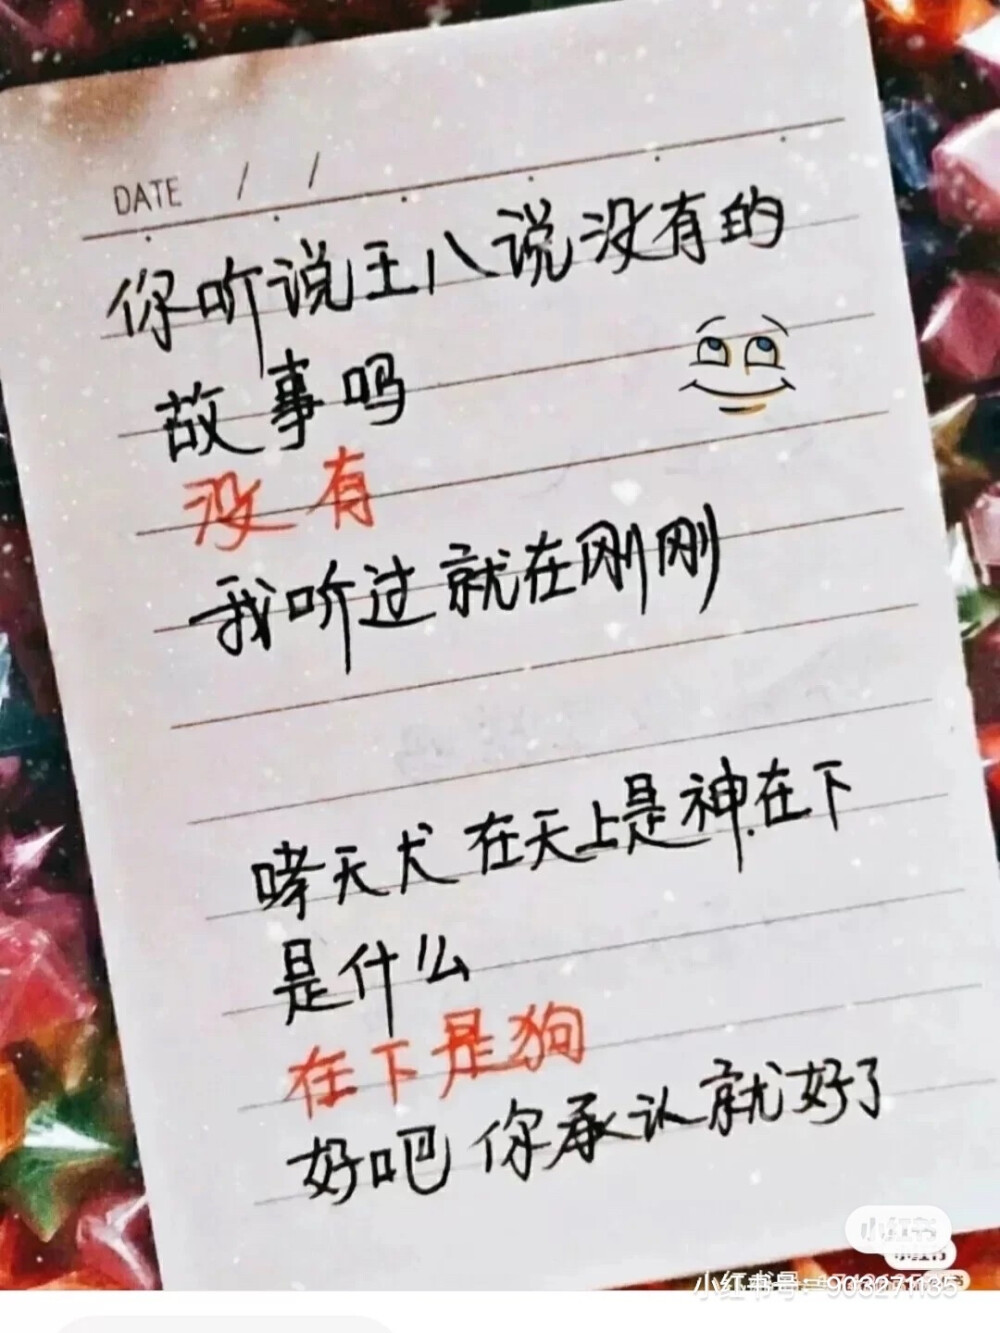 DATE / /
你听说王八说没有的
故事吗
没有
我听过就在刚刚
哮天犬在天上是神.在下
是什么
在下是狗
好吧你承认就好了
小红书
小红书
小红书号: